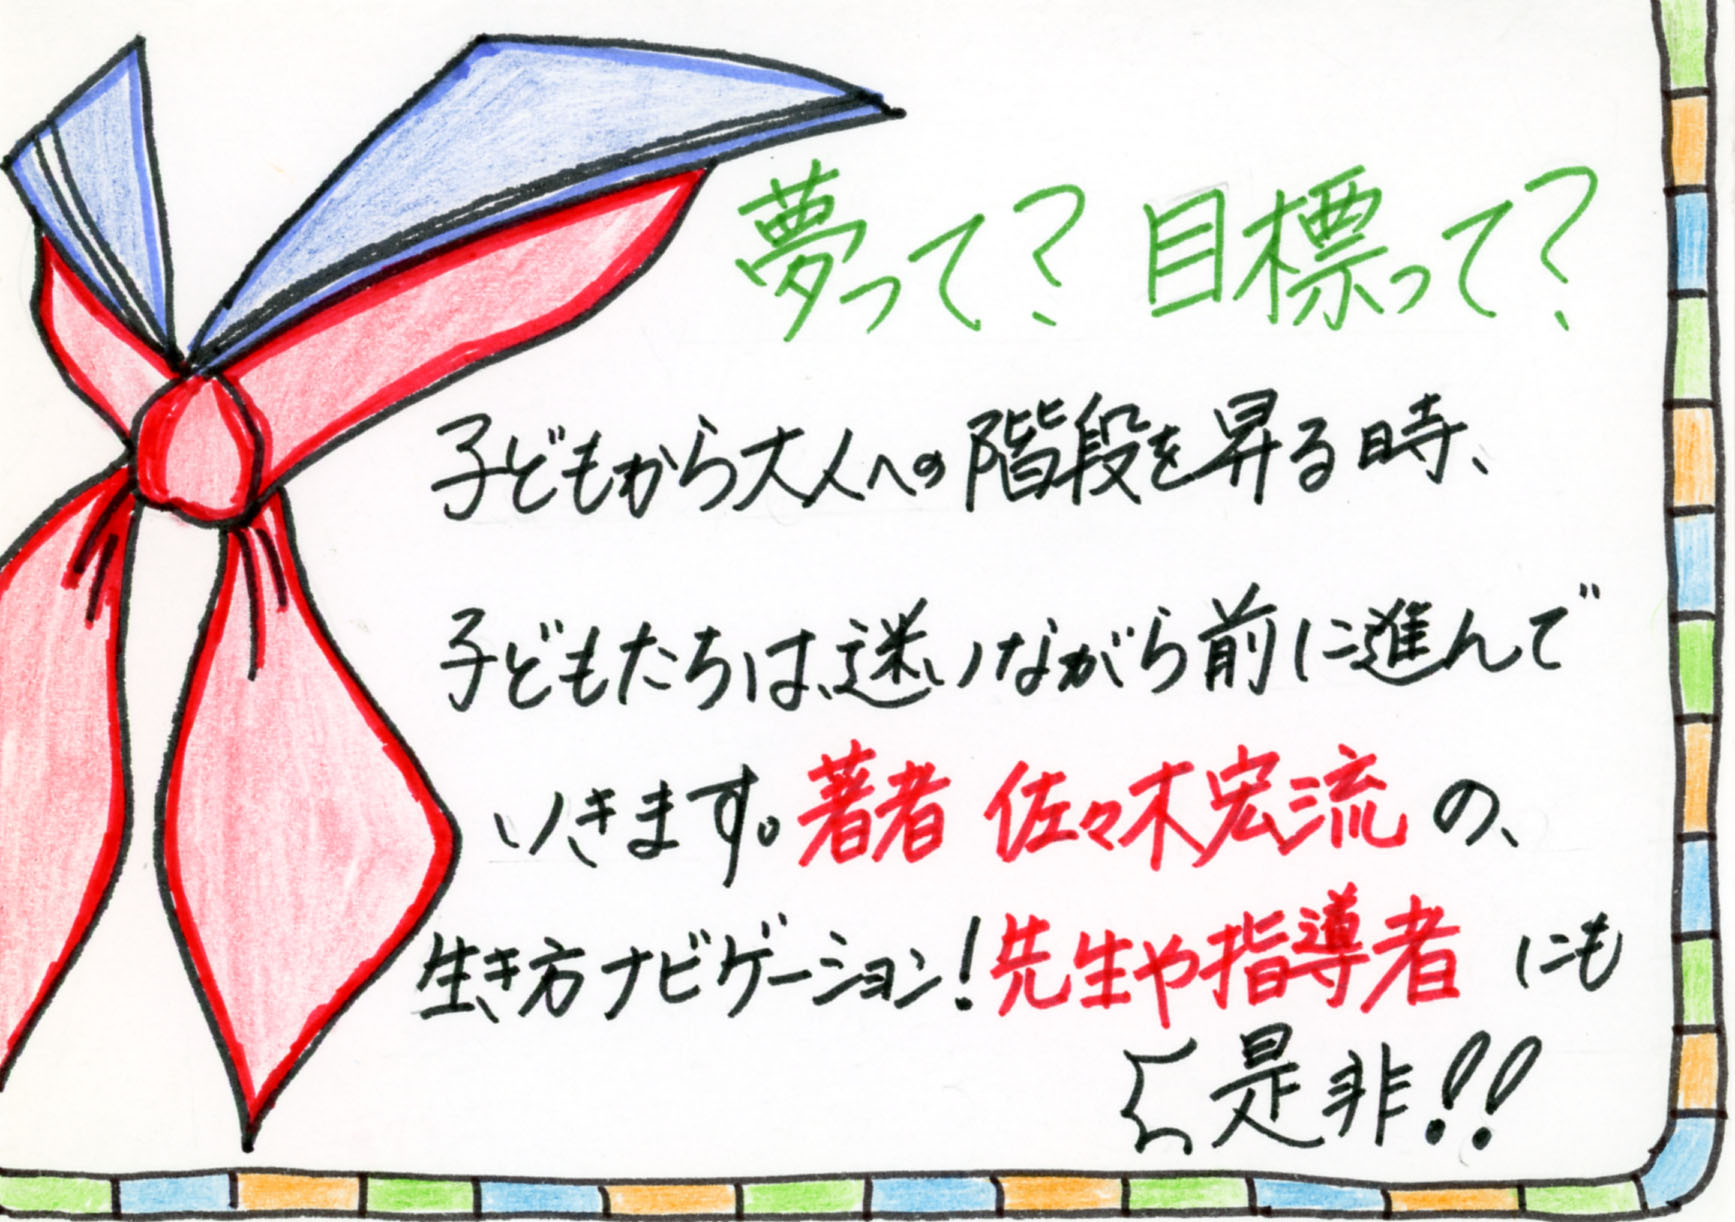 夢って？ 目標って？
子どもから大人への階段を昇る時、
子どもたちは、迷いながら前に進んで
いきます。著者 佐々木宏流の、
生き方ナビゲーション！先生や指導者にも
是非！！